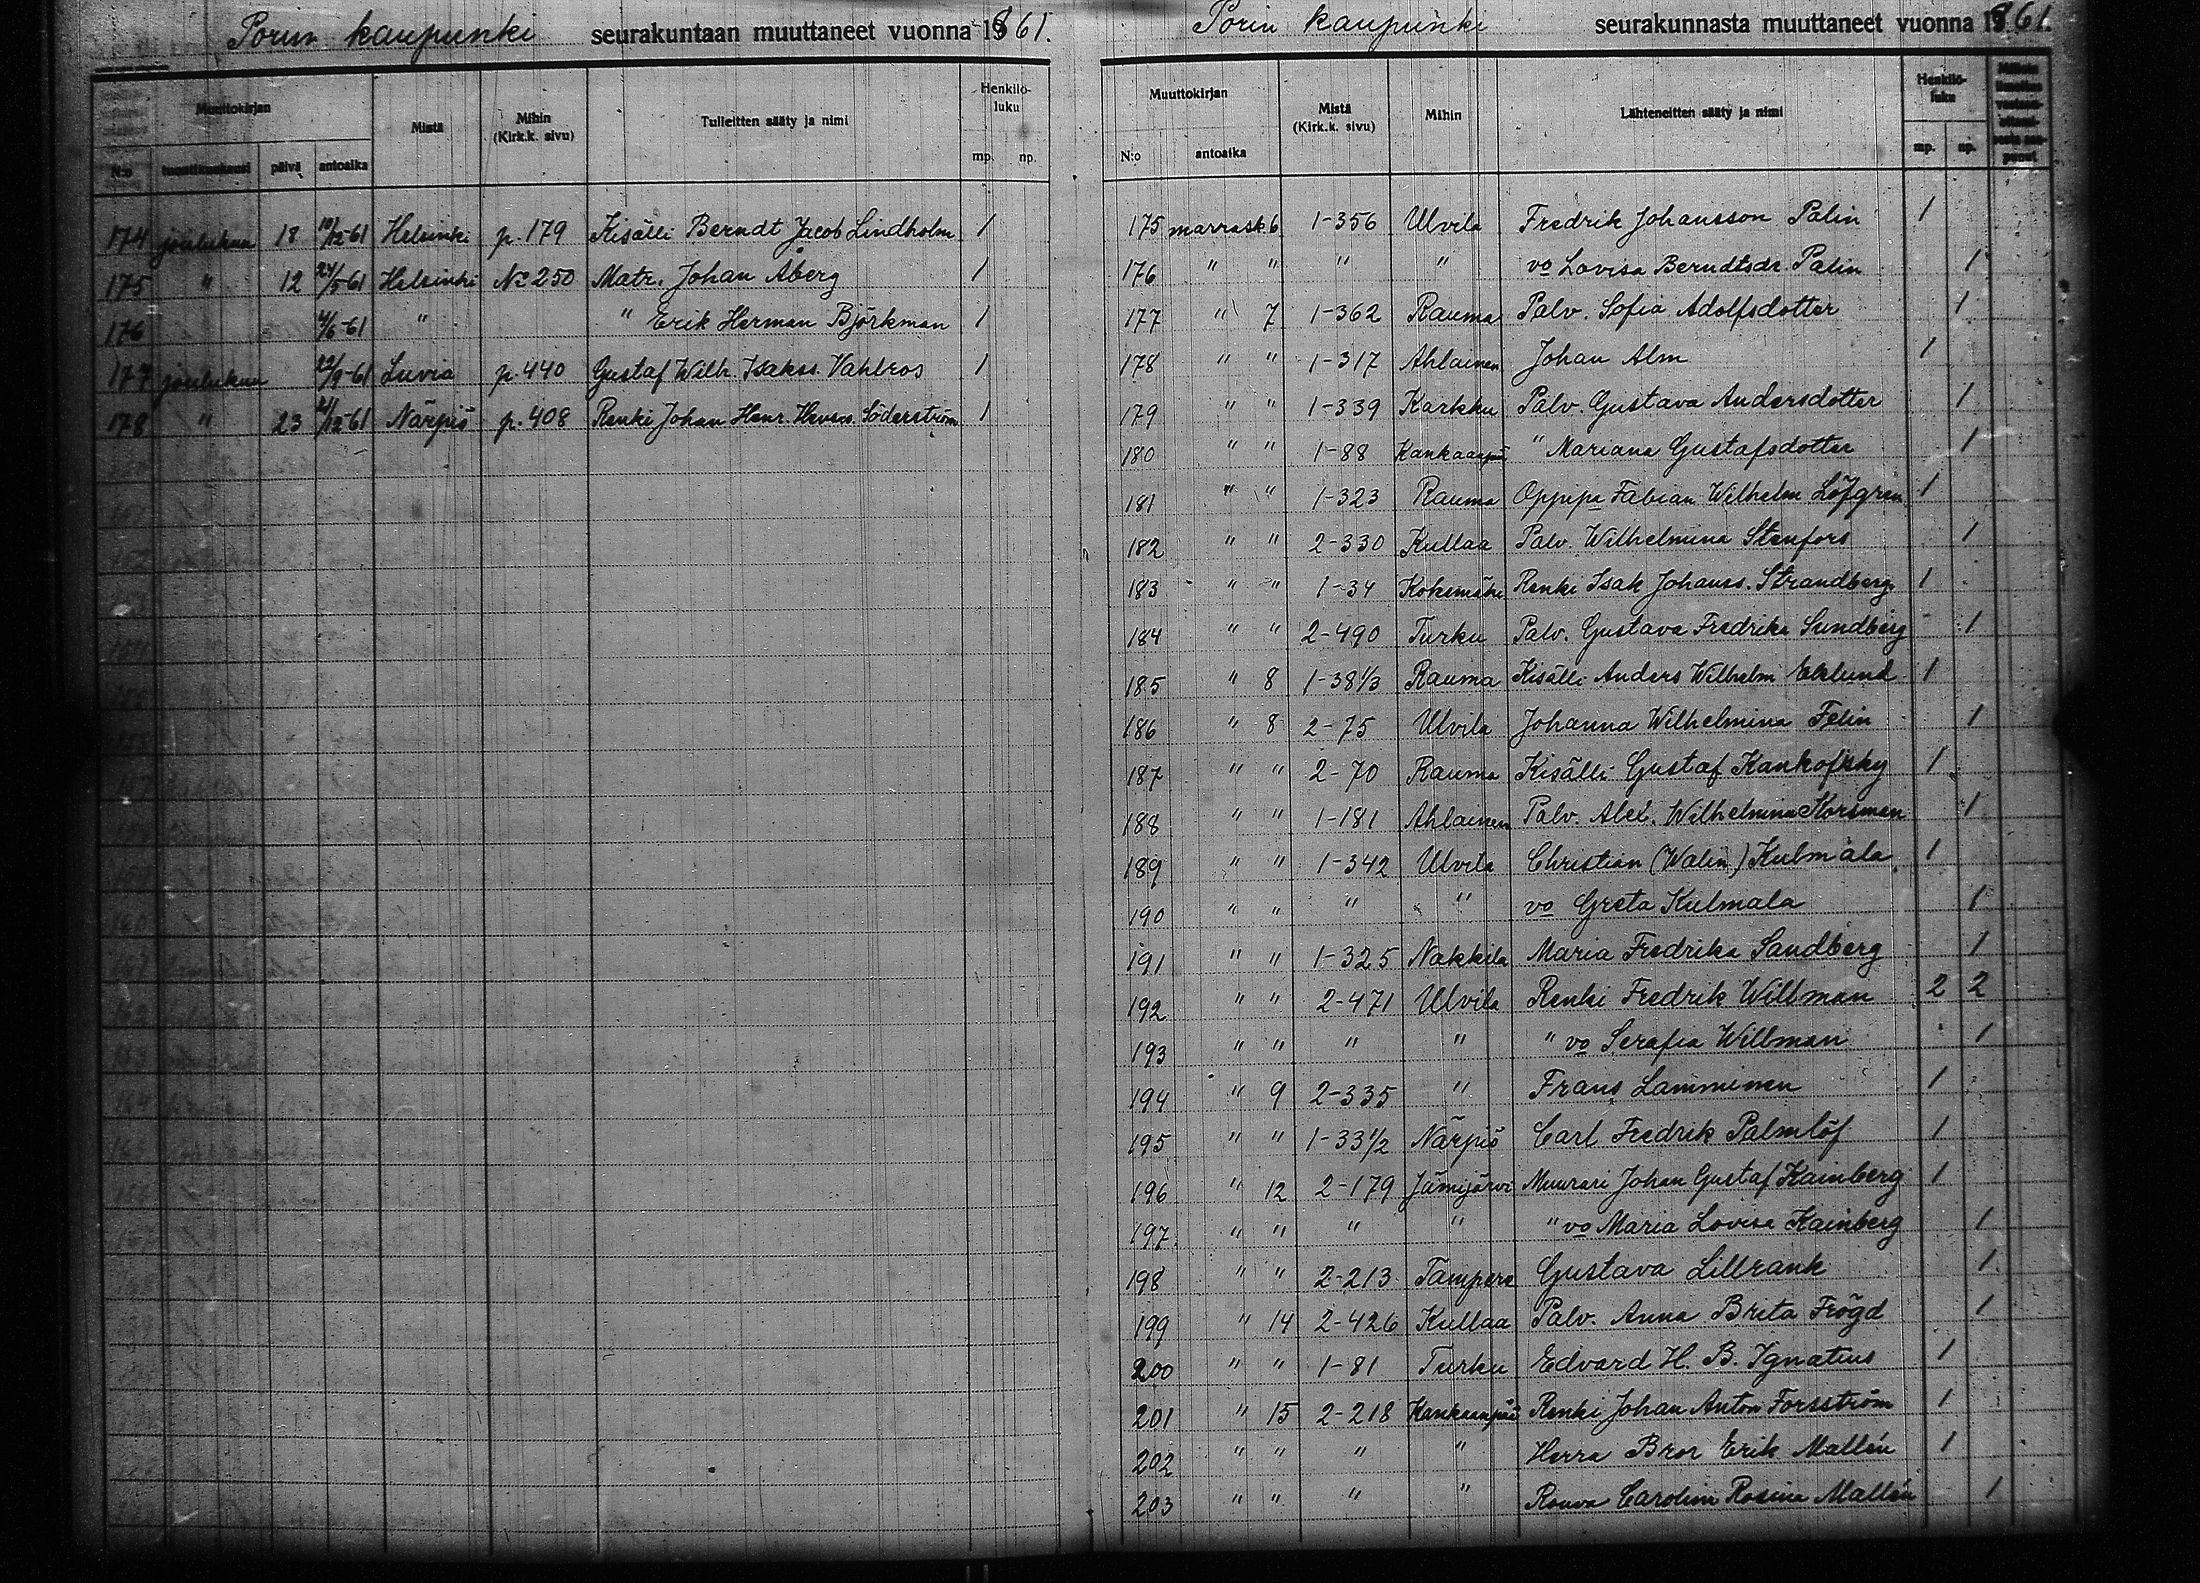 Porin kaupunki seurakuntaan muuttaneet vuonna 1861.
Muuttokirjan Mistä Mihin (Kirk.k. sivu) Tulleitten sääty ja nimi Henkilö-luku
N:o päivä antoaika mp. np.
174 joulukuu 18 19/12-61 Helsinki p. 179 Kisälli Berndt Jacob Lindholm 1
175 " 12 24/5-61 Helsinki No 250 Matr. Johan Åberg 1
176 4/6-61 " " Erik Herman Björkman 1
177 joulukuu 22/9-61 Luvia p. 440 Gustaf Wilh. Isakss. Vahlros 1
178 " 23 21/12-61 Närpiö p. 408 Renki Johan Henr. Söderström 1
Porin kaupunki seurakunnasta muuttaneet vuonna 1861.
Muuttokirjan Mistä (Kirk.k. sivu) Mihin Lähteneitten sääty ja nimi Henkilö-luku
N:o antoaika mp. np.
175 marrask. 6 1-356 Ulvila Fredrik Johansson Palin 1
176 " " " " vo Lovisa Berndtsdr. Palin 1
177 " 7 1-362 Rauma Palv. Sofia Adolfsdotter 1
178 " " 1-317 Ahlainen Johan Alm 1
179 " " 1-339 Karkku Palv. Gustava Andersdotter 1
180 " " 1-88 Kankaanpää " Mariana Gustafsdotter 1
181 " " 1-323 Rauma Oppipa Fabian Wilhelm Löfgren 1
182 " " 2-330 Kullaa Palv. Wilhelmina Stenfors 1
183 " " 1-34 Kokemäki Renki Isak Johanss. Strandberg 1
184 " " 2-490 Turku Palv. Gustava Fredrika Sundberg 1
185 " 8 1-38 1/3 Rauma Kisälli Anders Wilhelm Eklund 1
186 " 8 2-75 Ulvila Johanna Wilhelmina Felin 1
187 " " 2-70 Rauma Kisälli Gustaf Kankofsky 1
188 " " 1-181 Ahlainen Palv. Alex. Wilhelmina Korsman 1
189 " " 1-342 Ulvila Christian (Walin) Kulmala 1
190 " " " " vo Greta Kulmala 1
191 " " 1-325 Nakkila Maria Fredrika Sandberg 1
192 " " 2-471 Ulvila Renki Fredrik Willman 2 2
193 " " " " " vo Serafia Willman 1
194 " 9 2-335 " Frans Lamminen 1
195 " " 1-33 1/2 Närpiö Carl Fredrik Palmlöf 1
196 " 12 2-179 Jämijärvi Muurari Johan Gustaf Kainberg 1
197 " " " " " vo Maria Lovisa Kainberg 1
198 " " 2-213 Tampere Gustava Lillrank 1
199 " 14 2-426 Kullaa Palv. Anna Brita Frögd 1
200 " " 1-81 Turku Edvard H. B. Ignatius 1
201 " 15 2-218 Kankaanpää Renki Johan Anton Forsström 1
202 " " " " Herra Bror Erik Mallén 1
203 " " " " Rouva Carolina Rosina Mallén 1